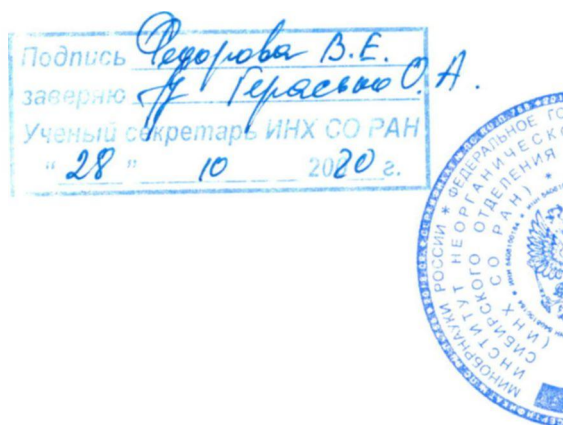 Подпись Федорова В.Е.
заверяю Герасько О.А.
Ученый секретарь ИНХ СО РАН
" 28 " 10 2020 г.
МИНОБРНАУКИ РОССИИ * ФЕДЕРАЛЬНОЕ ГО
ИНСТИТУТ НЕОРГАНИЧЕСКО
СИБИРСКОГО ОТДЕЛЕНИЯ
(ИНХ СО РАН) *